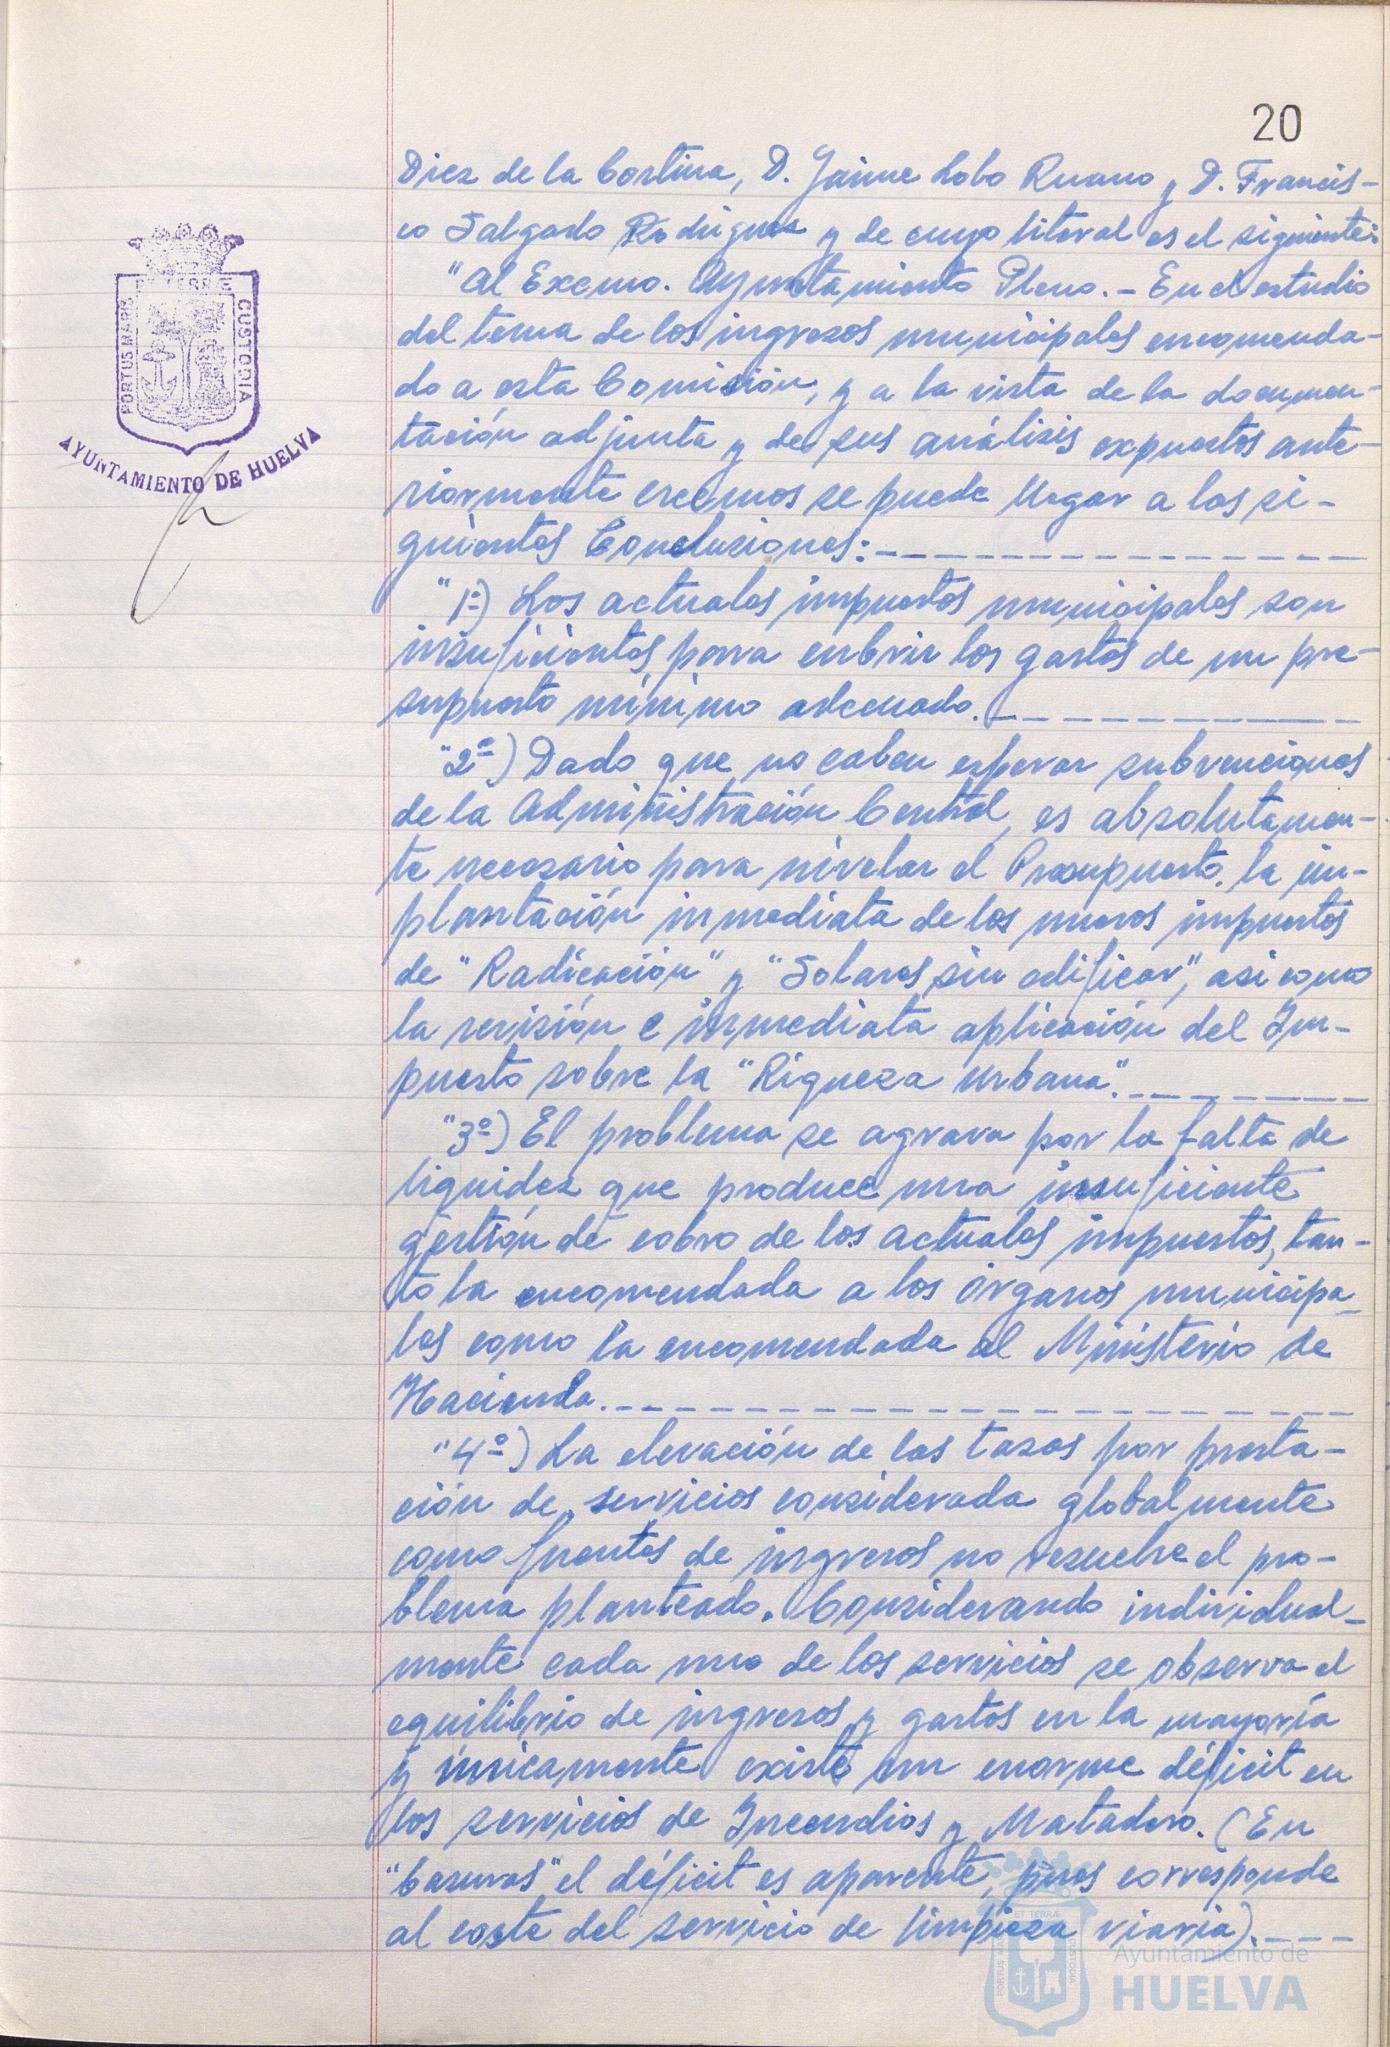 20
Diez de la Cortina, D. Jaime Lobo Ruano y D. Francis-
co Salgado Rodriguez y de cuyo literal es el siguiente:
"Al Excmo. Ayuntamiento Pleno.- En el estudio
del tema de los ingresos municipales encomenda-
do a esta Comisión, y a la vista de la documen-
tación adjunta y de sus análisis expuestos ante-
riormente creemos se puede llegar a las si-
guientes Conclusiones:
"1ª) Los actuales impuestos municipales son
insuficientes para cubrir los gastos de un pre-
supuesto mínimo adecuado.
"2ª) Dado que no caben esperar subvenciones
de la Administración Central, es absolutamen-
te necesario para nivelar el Presupuesto, la im-
plantación inmediata de los nuevos impuestos
de "Radicación" y "Solares sin edificar", asi como
la revisión e inmediata aplicación del Im-
puesto sobre la "Riqueza urbana".
"3º) El problema se agrava por la falta de
liquidez que produce una insuficiente
gestión de cobro de los actuales impuestos, tan-
to la encomendada a los órganos municipa-
les como la encomendada al Ministerio de
Hacienda.
"4º) La elevación de las tasas por presta-
ción de servicios considerada globalmente
como fuentes de ingresos no resuelve el pro-
blema planteado. Considerando individual-
mente cada uno de los servicios se observa el
equilibrio de ingresos y gastos en la mayoría
y únicamente existe un enorme déficit en
los servicios de Incendios y Matadero. (En
"basuras" el déficit es aparente, pues corresponde
al coste del servicio de limpieza viaria).
PORTUS MARIS
ET TERRÆ
CUSTODIA
AYUNTAMIENTO DE HUELVA
Ayuntamiento de
HUELVA